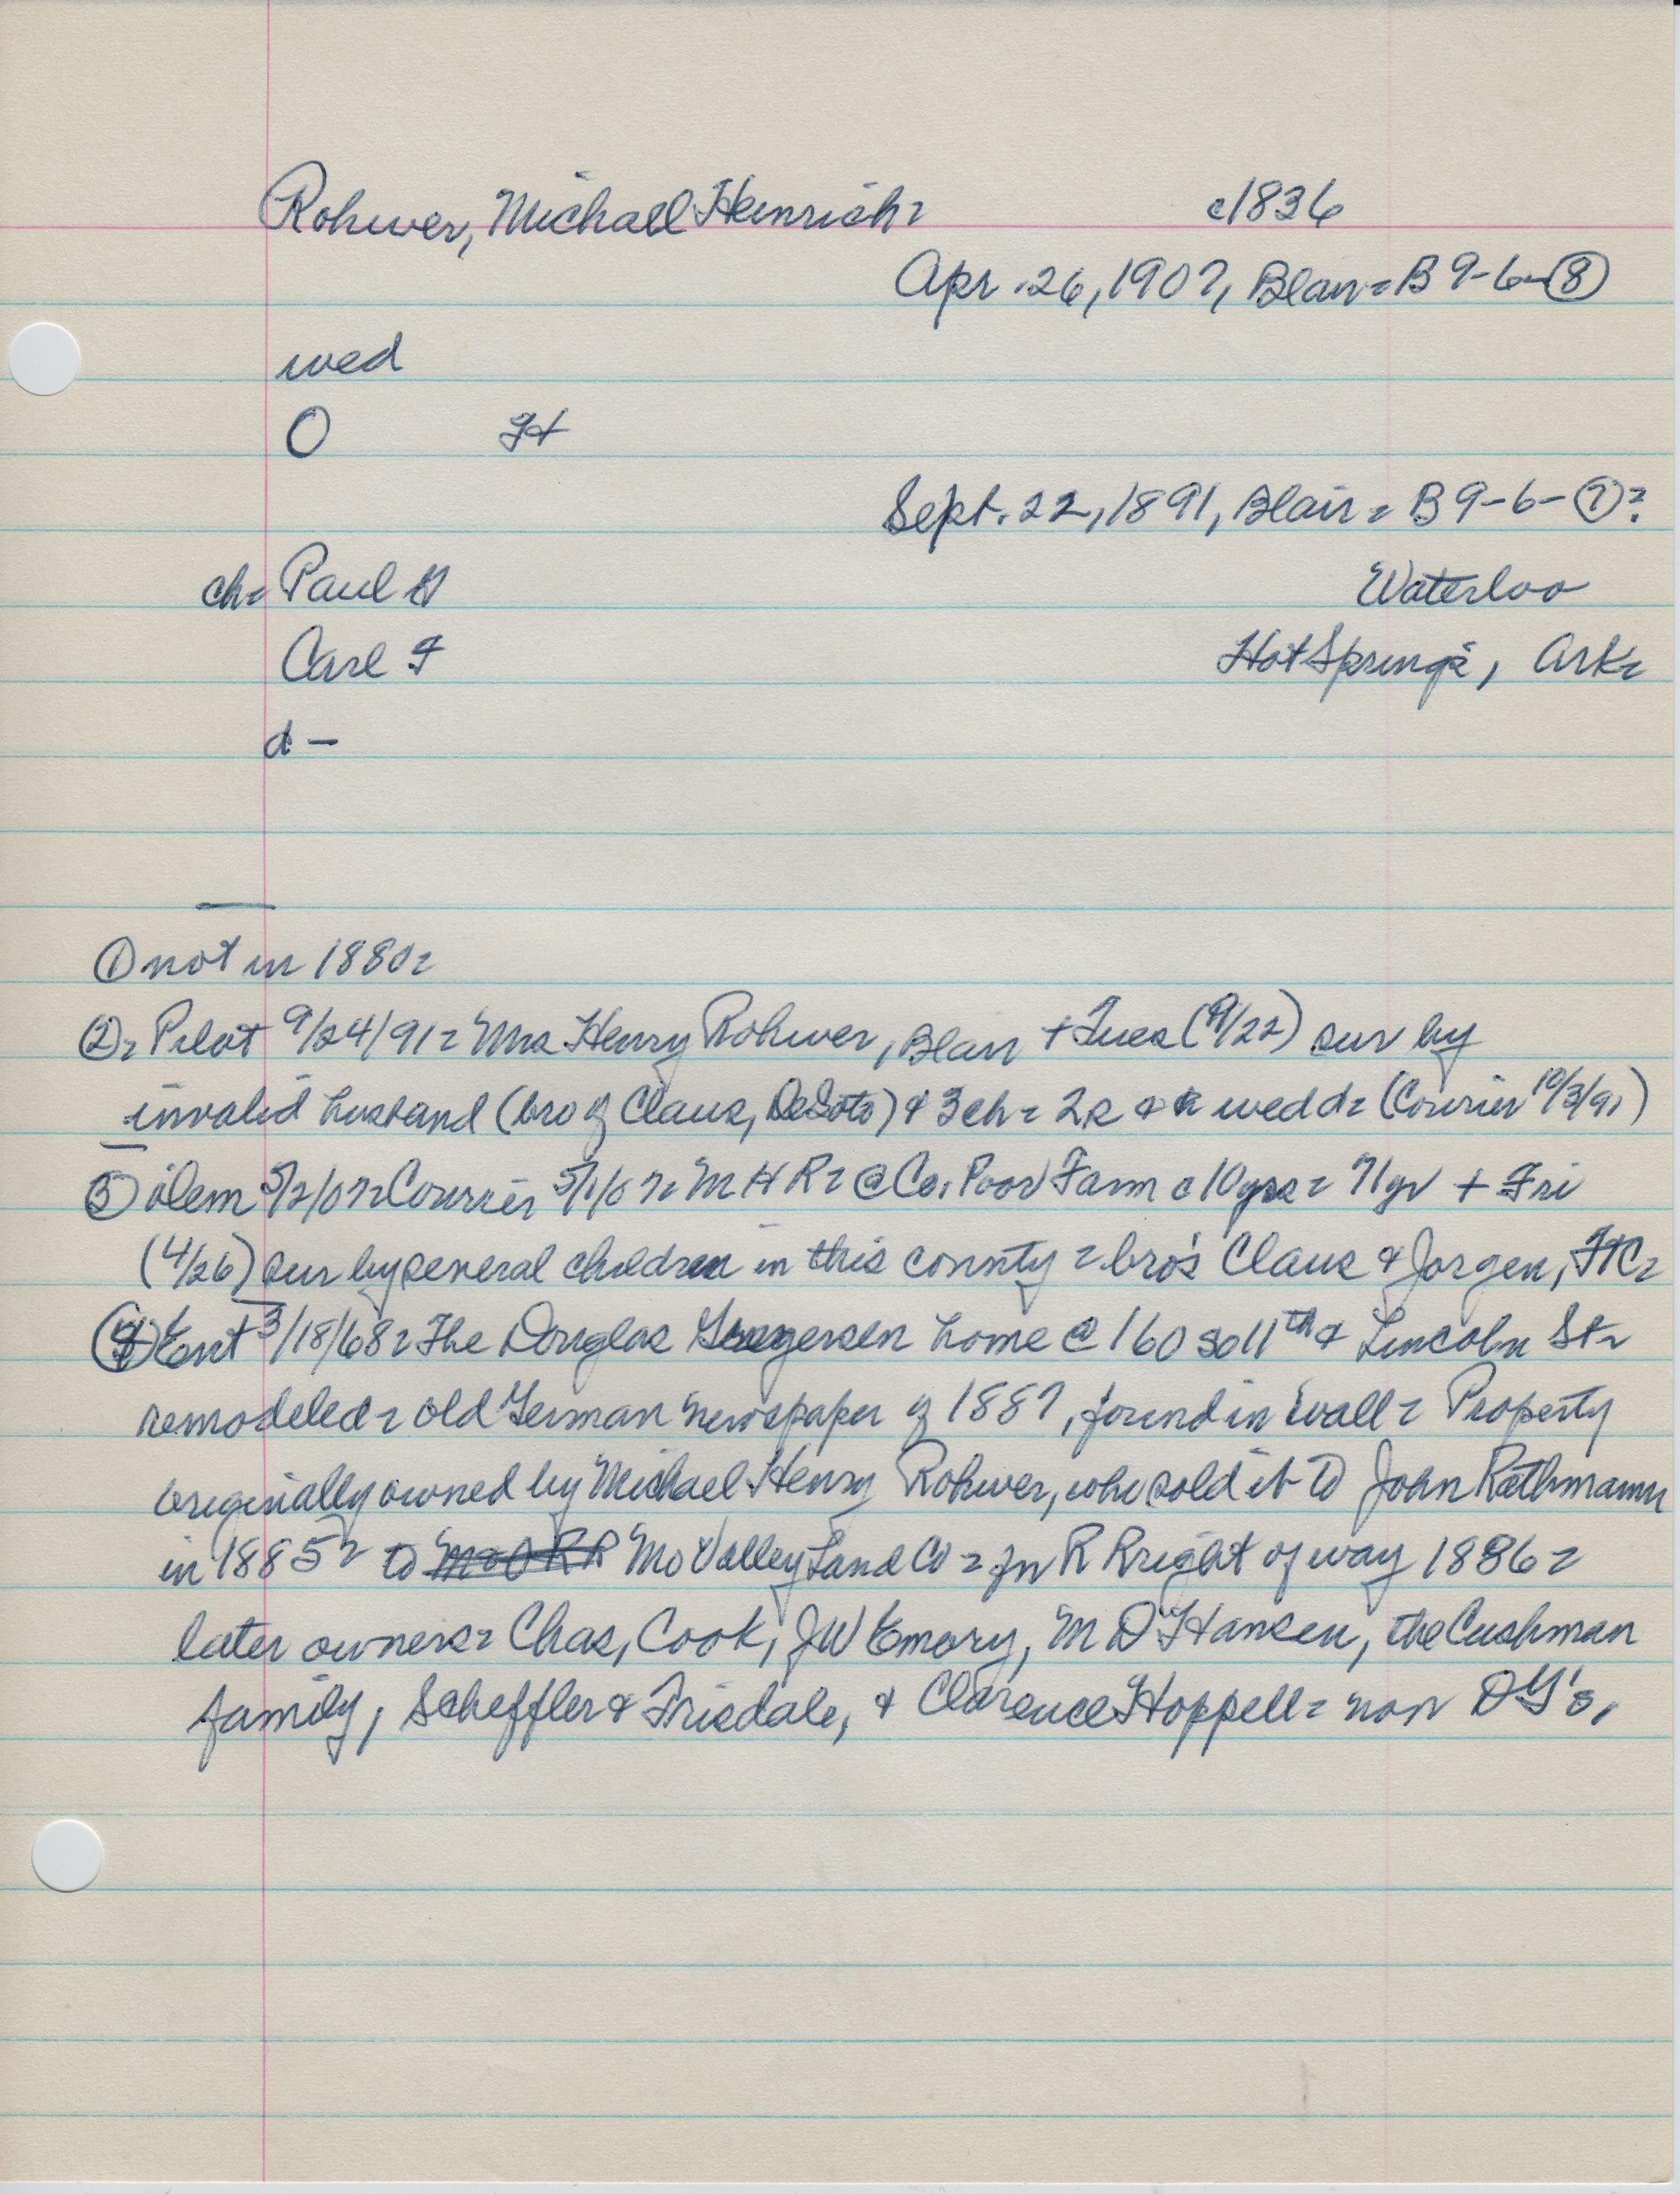 Rohwer, Michael Heinrich = c1836
Apr. 26, 1907, Blair = B 9-6-⑧
wed
O
Sept. 22, 1891, Blair = B 9-6-⑦?
ch = Paul H Waterloo
Carl F Hot Springs, Ark =
d -
① not in 1880 =
② = Pilot 9/24/91 = Mrs Henry Rohwer, Blair + Tues (9/22) sur by
invalid husband (bro of Claus, DeSoto) & 3 ch = 2 s & wed d = (Courier 10/3/91)
③ 5/2/07 = Courier 5/1/07 = M H R = @ Co. Poor Farm c 10 yrs = 71 yr + Fri
(4/26) sur by several children in this county = bro's Claus & Jorgen, FtC =
④ Ent 3/18/68 = The Douglas home @ 160 So 11th & Lincoln St =
remodeled = old German newspaper of 1887, found in wall = Property
originally owned by Michael Henry Rohwer, who sold it to John Rathmann
in 1885 = to Mo Valley Land Co = for R R right of way 1886 =
later owners = Chas, Cook, JW Emory, M D Hansen, the Cushman
family, Scheffler & Trisdale, & Clarence Hoppell = now DG's.